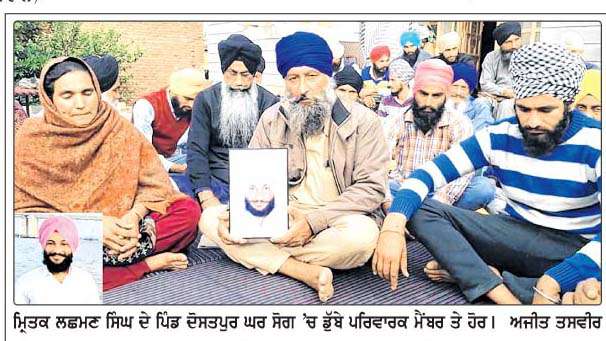 ਮ੍ਰਿਤਕ ਲਛਮਣ ਸਿੰਘ ਦੇ ਪਿੰਡ ਦੋਸਤਪੁਰ ਘਰ ਸੋਗ 'ਚ ਡੁੱਬੇ ਪਰਿਵਾਰਕ ਮੈਂਬਰ ਤੇ ਹੋਰ। ਅਜੀਤ ਤਸਵੀਰ